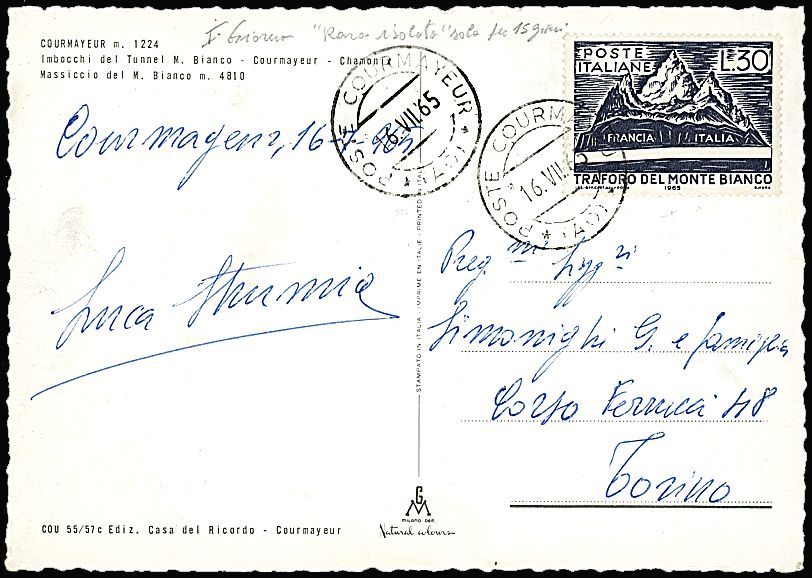 I. Giorno "Rara isolata" solo per 15 giorni
COURMAYEUR m. 1224
Imbocchi del Tunnel M. Bianco - Courmayeur - Chamonix
Massiccio del M. Bianco m. 4810
POSTE COURMAYEUR * (AO) *
16.VII.65
POSTE COURMAYEUR * (AO) *
16.VII.65
POSTE ITALIANE
L.30
FRANCIA ITALIA
TRAFORO DEL MONTE BIANCO
1965
Courmayeur, 16-7-965
Luca
Preg.mi Sigg.ri
Simonighi G. e famiglia
Corso Ferrucci 48
Torino
STAMPATO IN ITALIA - IMPRIMÉ EN ITALIE - PRINTED
GM
MILANO DEP.
Natural colours
COU 55/57c Ediz. Casa del Ricordo - Courmayeur